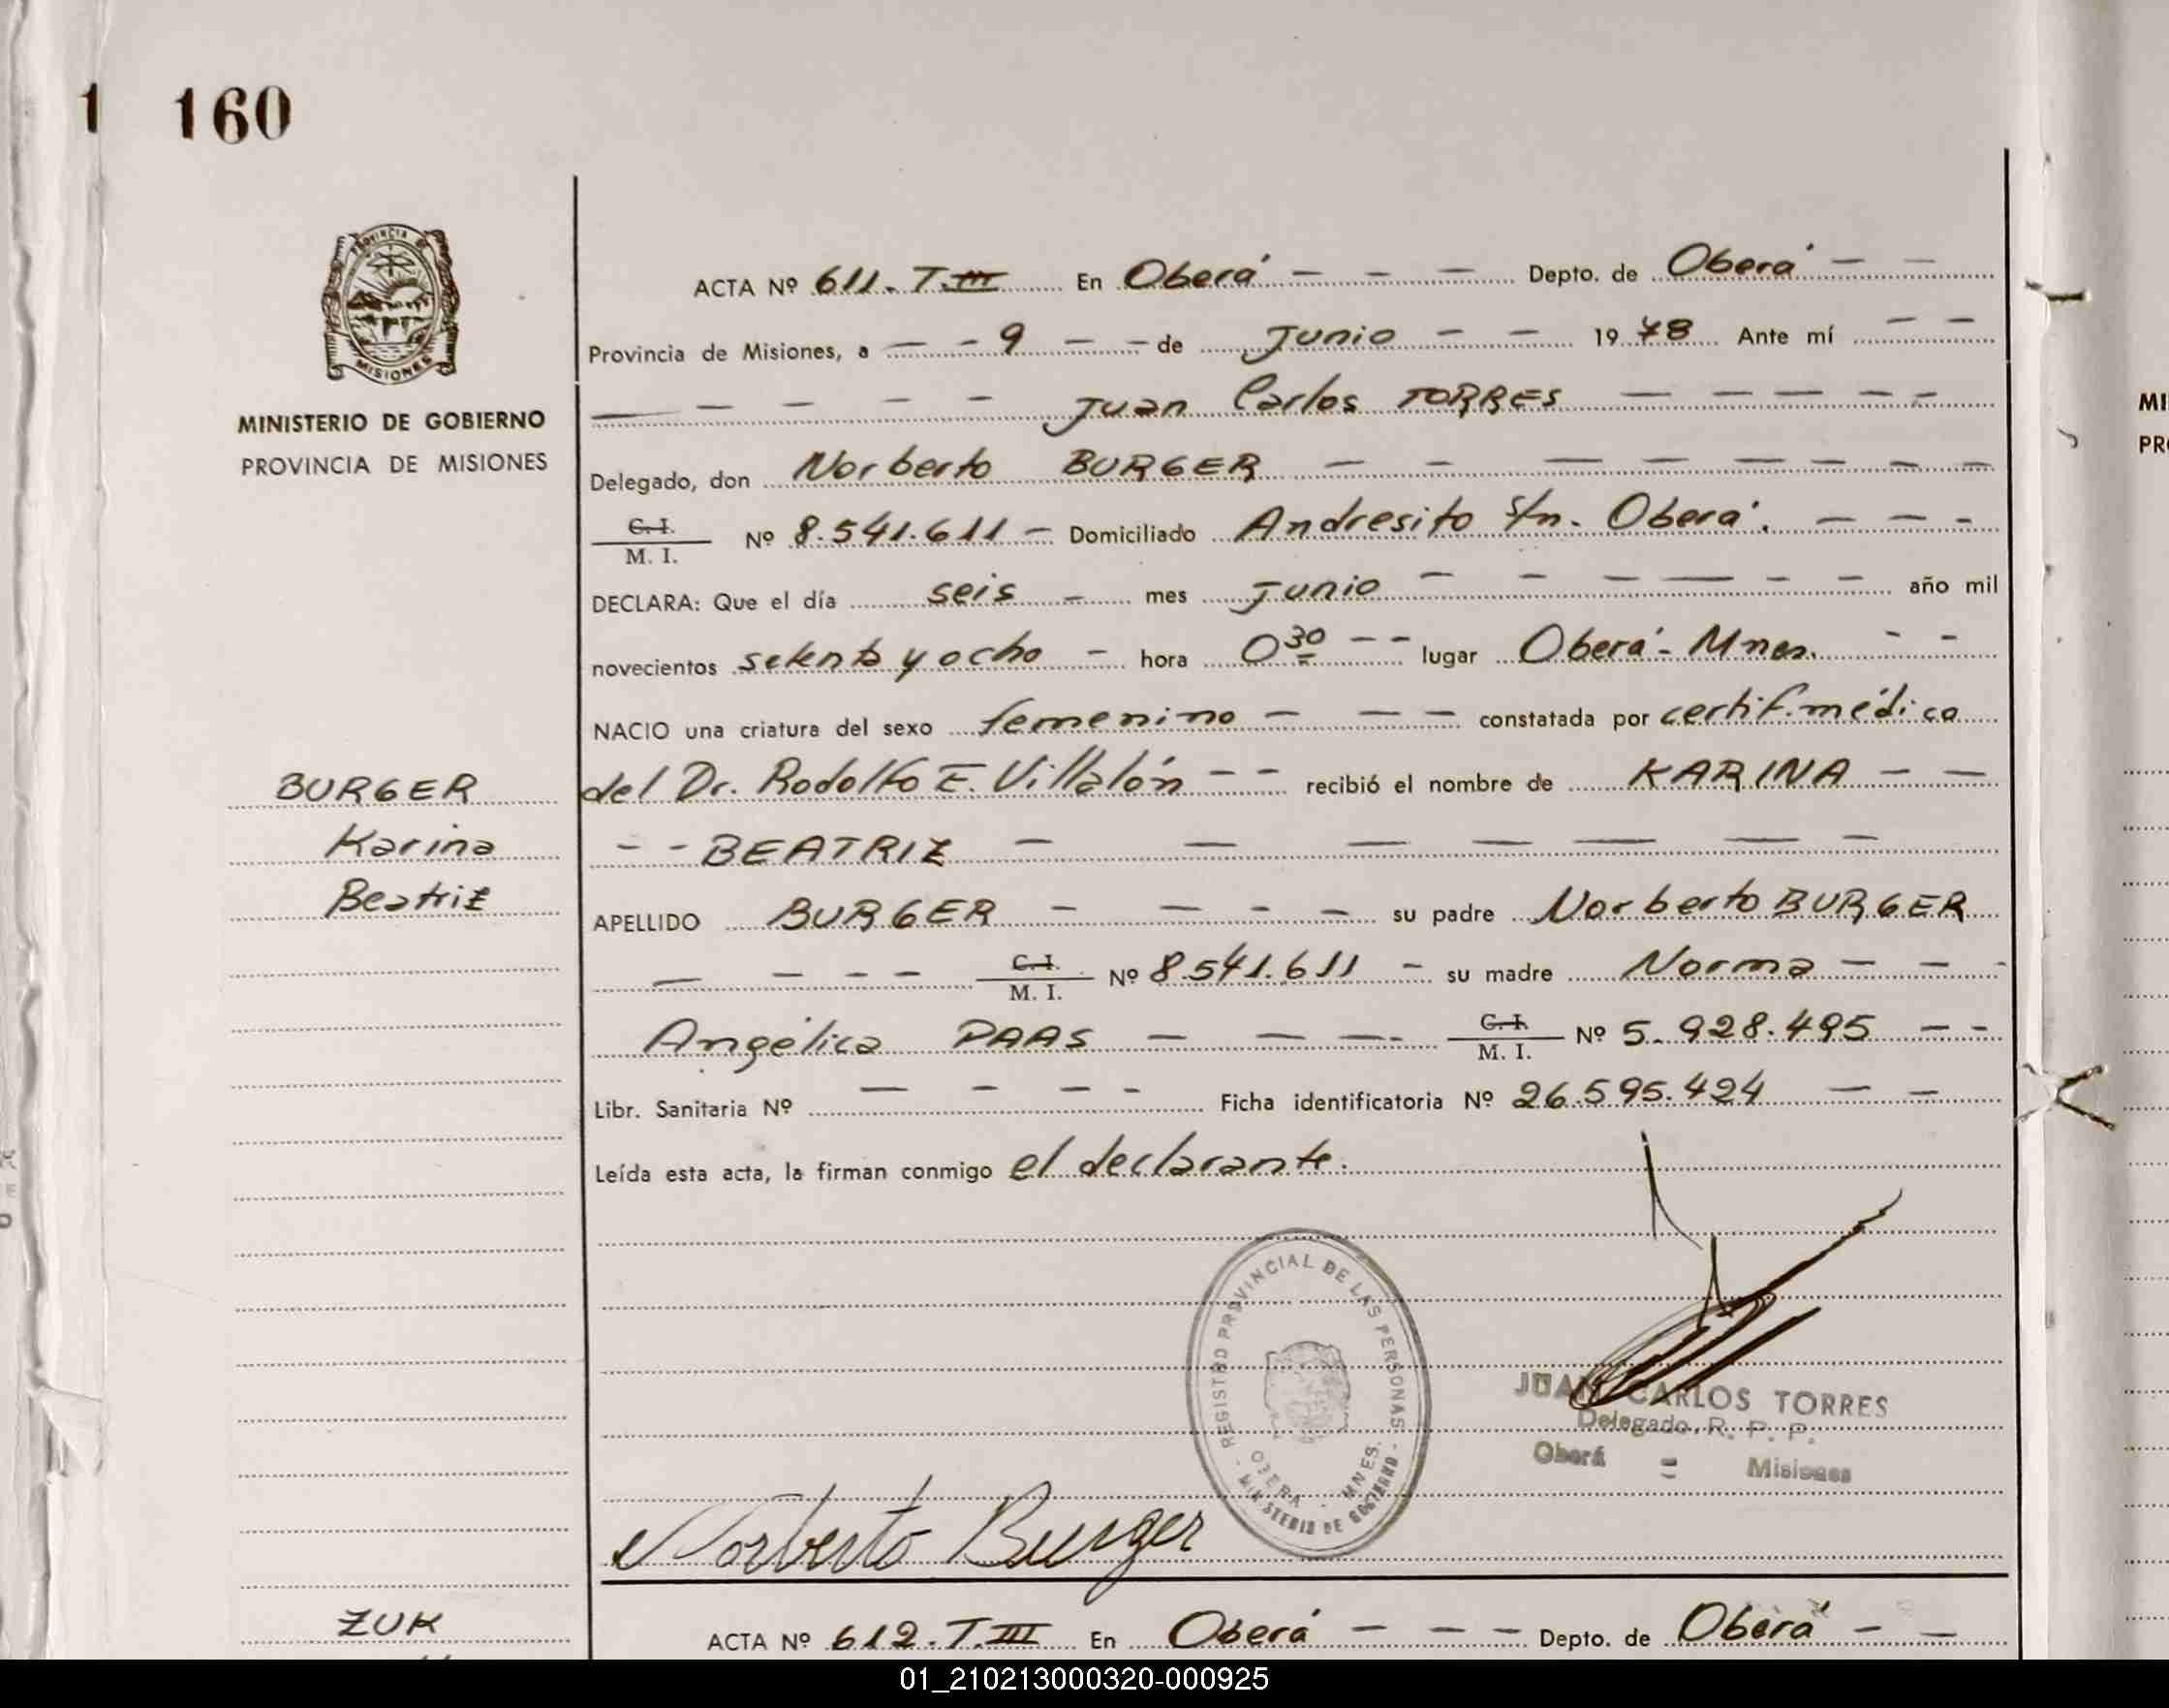 1 160
PROVINCIA DE
MISIONES
MINISTERIO DE GOBIERNO
PROVINCIA DE MISIONES
ACTA Nº 611. T. III En Oberá - - - Depto. de Oberá - -
Provincia de Misiones, a - - 9 - - de Junio - - 1978 Ante mí - -
- - - - - Juan Carlos TORRES - - - - -
Delegado, don Norberto BURGER - - - - - - - - -
C. I.
M. I. Nº 8.541.611 - Domiciliado Andresito s/n. Oberá. - - -
DECLARA: Que el día seis - mes Junio - - - - - - año mil
novecientos setenta y ocho - hora 0 30 - - lugar Oberá - Mnes. - -
NACIO una criatura del sexo femenino - - - constatada por certif. médico
BURGER del Dr. Rodolfo E. Villalón - - recibió el nombre de KARINA - -
Karina - - BEATRIZ - - - - - - -
Beatriz APELLIDO BURGER - - - - su padre Norberto BURGER
- - - - C. I.
M. I. Nº 8.541.611 - su madre Norma - - -
Angélica PAAS - - - - C. I.
M. I. Nº 5.928.495 - -
Libr. Sanitaria Nº - - - - Ficha identificatoria Nº 26.595.424 - -
Leída esta acta, la firman conmigo el declarante.
REGISTRO PROVINCIAL DE LAS PERSONAS
OBERA - MNES.
- MINISTERIO DE GOBIERNO -
JUAN CARLOS TORRES
Delegado, R. P. P.
Oberá = Misiones
Norberto Burger
ZUK ACTA Nº 612. T. III En Oberá - - - Depto. de Oberá - -
MI
PR
01_210213000320-000925